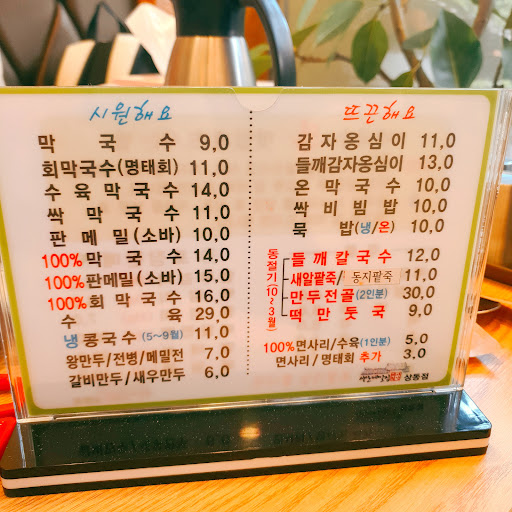 시원해요
막국수 9,0
회막국수(명태회) 11,0
수육막국수 14,0
싹막국수 11,0
판메밀(소바) 10,0
100% 막국수 14,0
100% 판메밀(소바) 15,0
100% 회막국수 16,0
수육 29,0
냉콩국수 (5~9월) 11,0
왕만두/전병/메밀전 7,0
갈비만두/새우만두 6,0
뜨끈해요
감자옹심이 11,0
들깨감자옹심이 13,0
온막국수 10,0
싹비빔밥 10,0
묵밥(냉/온) 10,0
동절기(10~3월)
들깨칼국수 12,0
새알팥죽 동지팥죽 11,0
만두전골(2인분) 30,0
떡만둣국 9,0
100% 면사리/수육(1인분) 5,0
면사리/명태회 추가 3,0
상동점